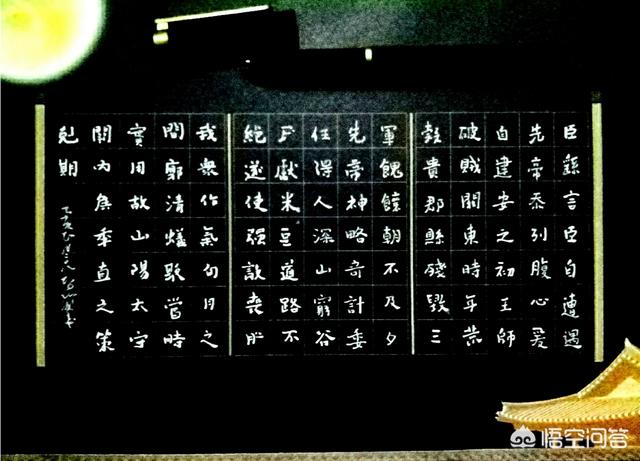 臣繇言臣自遭遇
先帝忝列腹心爰
自建安之初王師
破賊關東時年荒
穀貴郡縣殘毀三
軍餽饟朝不及夕
先帝神略奇計委
任得人深山窮谷
民獻米豆道路不
絕遂使強敵喪胆
我衆作氣旬日之
間廓清蟻聚當時
實用故山陽太守
關內侯季直之策
尅期
悟空问答